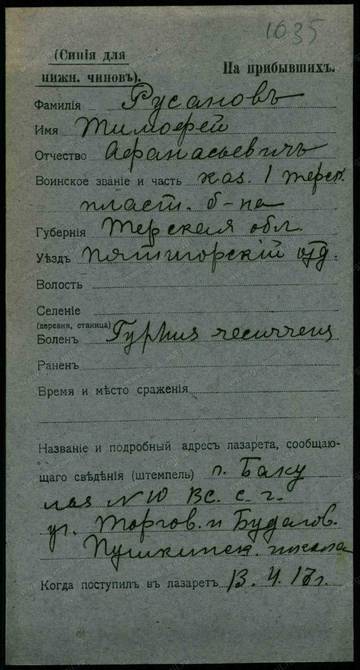 1635
(Синія для
нижн. чиновъ).
На прибывшихъ.
Фамилія Русановъ
Имя Тимофей
Отчество Афанасьевичъ
Воинское званіе и часть каз. 1 терск.
пласт. б-на
Губернія Терская обл
Уѣздъ Пятигорскій отд.
Волость
Селеніе
(деревня, станица)
Боленъ
Раненъ
Время и мѣсто сраженія
Названіе и подробный адресъ лазарета, сообщаю-
щаго свѣдѣнія (штемпель) г. Баку
лаз N 10 ВС. С. Г.
уг. Торгов. и Будагов.
Пушкинск. школа
Когда поступилъ въ лазаретъ 13. 4. 17 г.